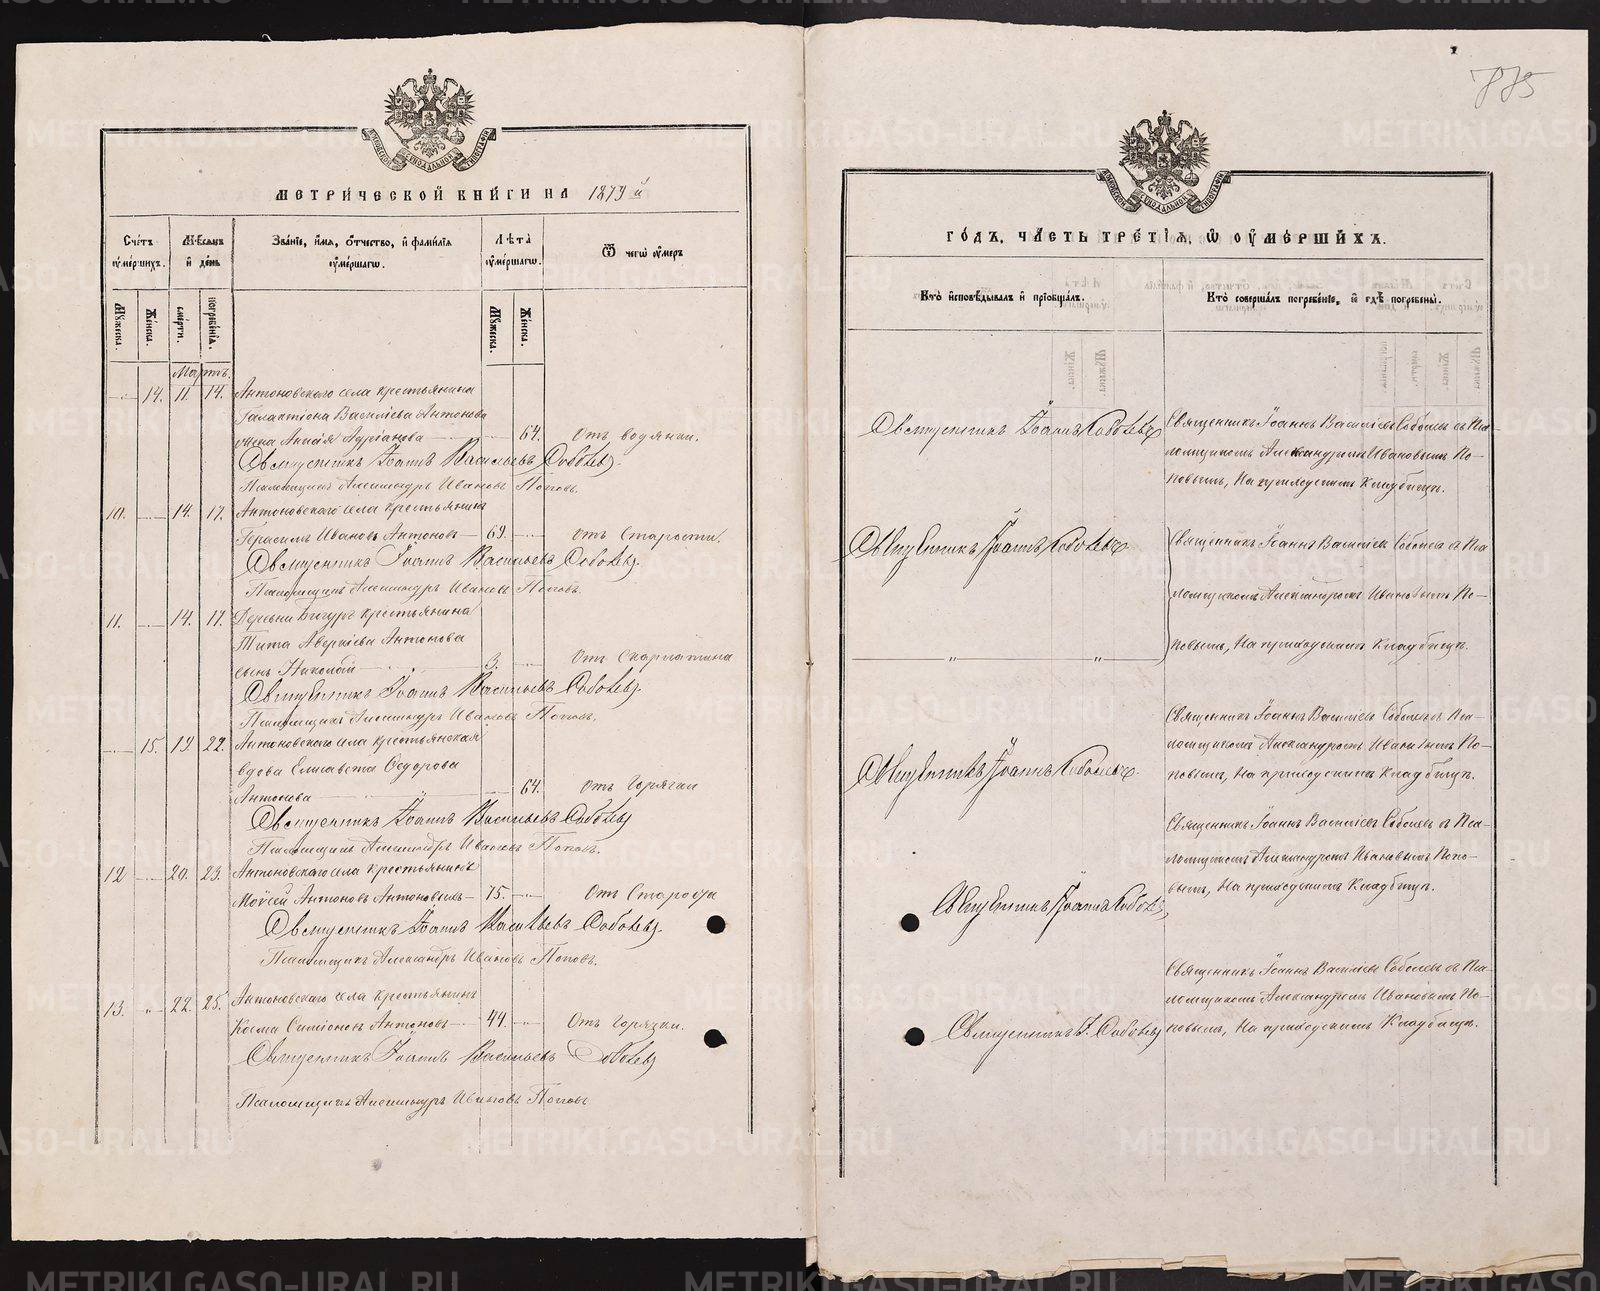 885
МЕТРИЧЕСКОЙ КНИГИ НА 1879 й
Счетъ умершихъ.
Мѣсяцъ и день
Званіе, имя, отчество, и фамилія умершаго.
Лѣта умершаго.
Ѿ чегѡ умеръ
Мужеска.
Женска.
смерти.
погребенія.
Мужеска.
Женска.
Мартъ.
14. 11. 14. Антоновскаго села крестьянина
Галактіона Василіева Антонова
жена Адріанова 64. Отъ водянки.
Священникъ Іоаннъ Васильевъ Соболевъ.
Псаломщикъ Александръ Ивановъ Поповъ.
10. 14. 17. Антоновскаго села крестьянинъ
Герасимъ Ивановъ Антоновъ 69. Отъ Старости.
Священникъ Іоаннъ Васильевъ Соболевъ.
Псаломщикъ Александръ Ивановъ Поповъ.
11. 14. 17. Деревни крестьянина
Тита Аверкіева Антонова
сынъ Николай 3. Отъ Скарлатина
Священникъ Іоаннъ Васильевъ Соболевъ.
Псаломщикъ Александръ Ивановъ Поповъ.
15. 19 22. Антоновскаго села крестьянская
вдова Елисавета Ѳедорова
Антонова 64. Отъ Горячки
Священникъ Іоаннъ Васильевъ Соболевъ
Псаломщикъ Александръ Ивановъ Поповъ.
12 20. 23. Антоновскаго села крестьянинъ
Моѵсей Антоновъ 75. Отъ Старости
Священникъ Іоаннъ Васильевъ Соболевъ.
Псаломщикъ Александръ Ивановъ Поповъ.
13. 22. 25. Антоновскаго села крестьянинъ
Косма Симіоновъ Антоновъ 44. Отъ Горячки.
Священникъ Іоаннъ Васильевъ Соболевъ
Псаломщикъ Александръ Ивановъ Поповъ
ГОДЪ, ЧАСТЬ ТРЕТІЯ, Ѡ УМЕРШИХЪ.
Кто исповѣдывалъ и пріобщалъ.
Кто совершалъ погребеніе, и гдѣ погребены.
Священникъ Іоаннъ Соболевъ
Священникъ Іоаннъ Василіевъ Соболевъ съ Пса-
ломщикомъ Александромъ Ивановымъ По-
повымъ, На приходскомъ Кладбищѣ.
Священникъ Іоаннъ Соболевъ
Священникъ Іоаннъ Василіевъ Соболевъ съ Пса
ломщикомъ Александромъ Ивановымъ По-
повымъ, На приходскомъ Кладбищѣ.
„ „
Священникъ Іоаннъ Соболевъ.
Священникъ Іоаннъ Василіевъ Соболевъ съ Пса-
ломщикомъ Александромъ Ивановымъ По-
повымъ, На приходскомъ Кладбищѣ.
Священникъ Іоаннъ Соболевъ
Священникъ Іоаннъ Василіевъ Соболевъ съ Пса-
ломщикомъ Александромъ Ивановымъ Попо-
вымъ, На приходскомъ Кладбищѣ.
Священникъ І. Соболевъ
Священникъ Іоаннъ Василіевъ Соболевъ съ Пса-
ломщикомъ Александромъ Ивановымъ По-
повымъ, На приходскомъ Кладбищѣ.
METRIKI.GASO-URAL.RU